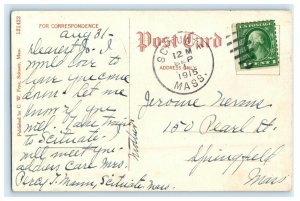 FOR CORRESPONDENCE
Aug 31-
Dearest J. I
would love to
have you come
down. Let me
know if you
will. Take train
to Scituate
will meet you
address Care Mrs.
Percy T. Mann, Scituate Mass.
Mother
131422
Published by C. W. Frye, Scituate, Mass.
Post Card
ADDRESS ONLY
12 M
SEP
1915
MASS.
U.S. POSTAGE
1 CENT 1
Jerome
150 Pearl St.
Springfield
Mass